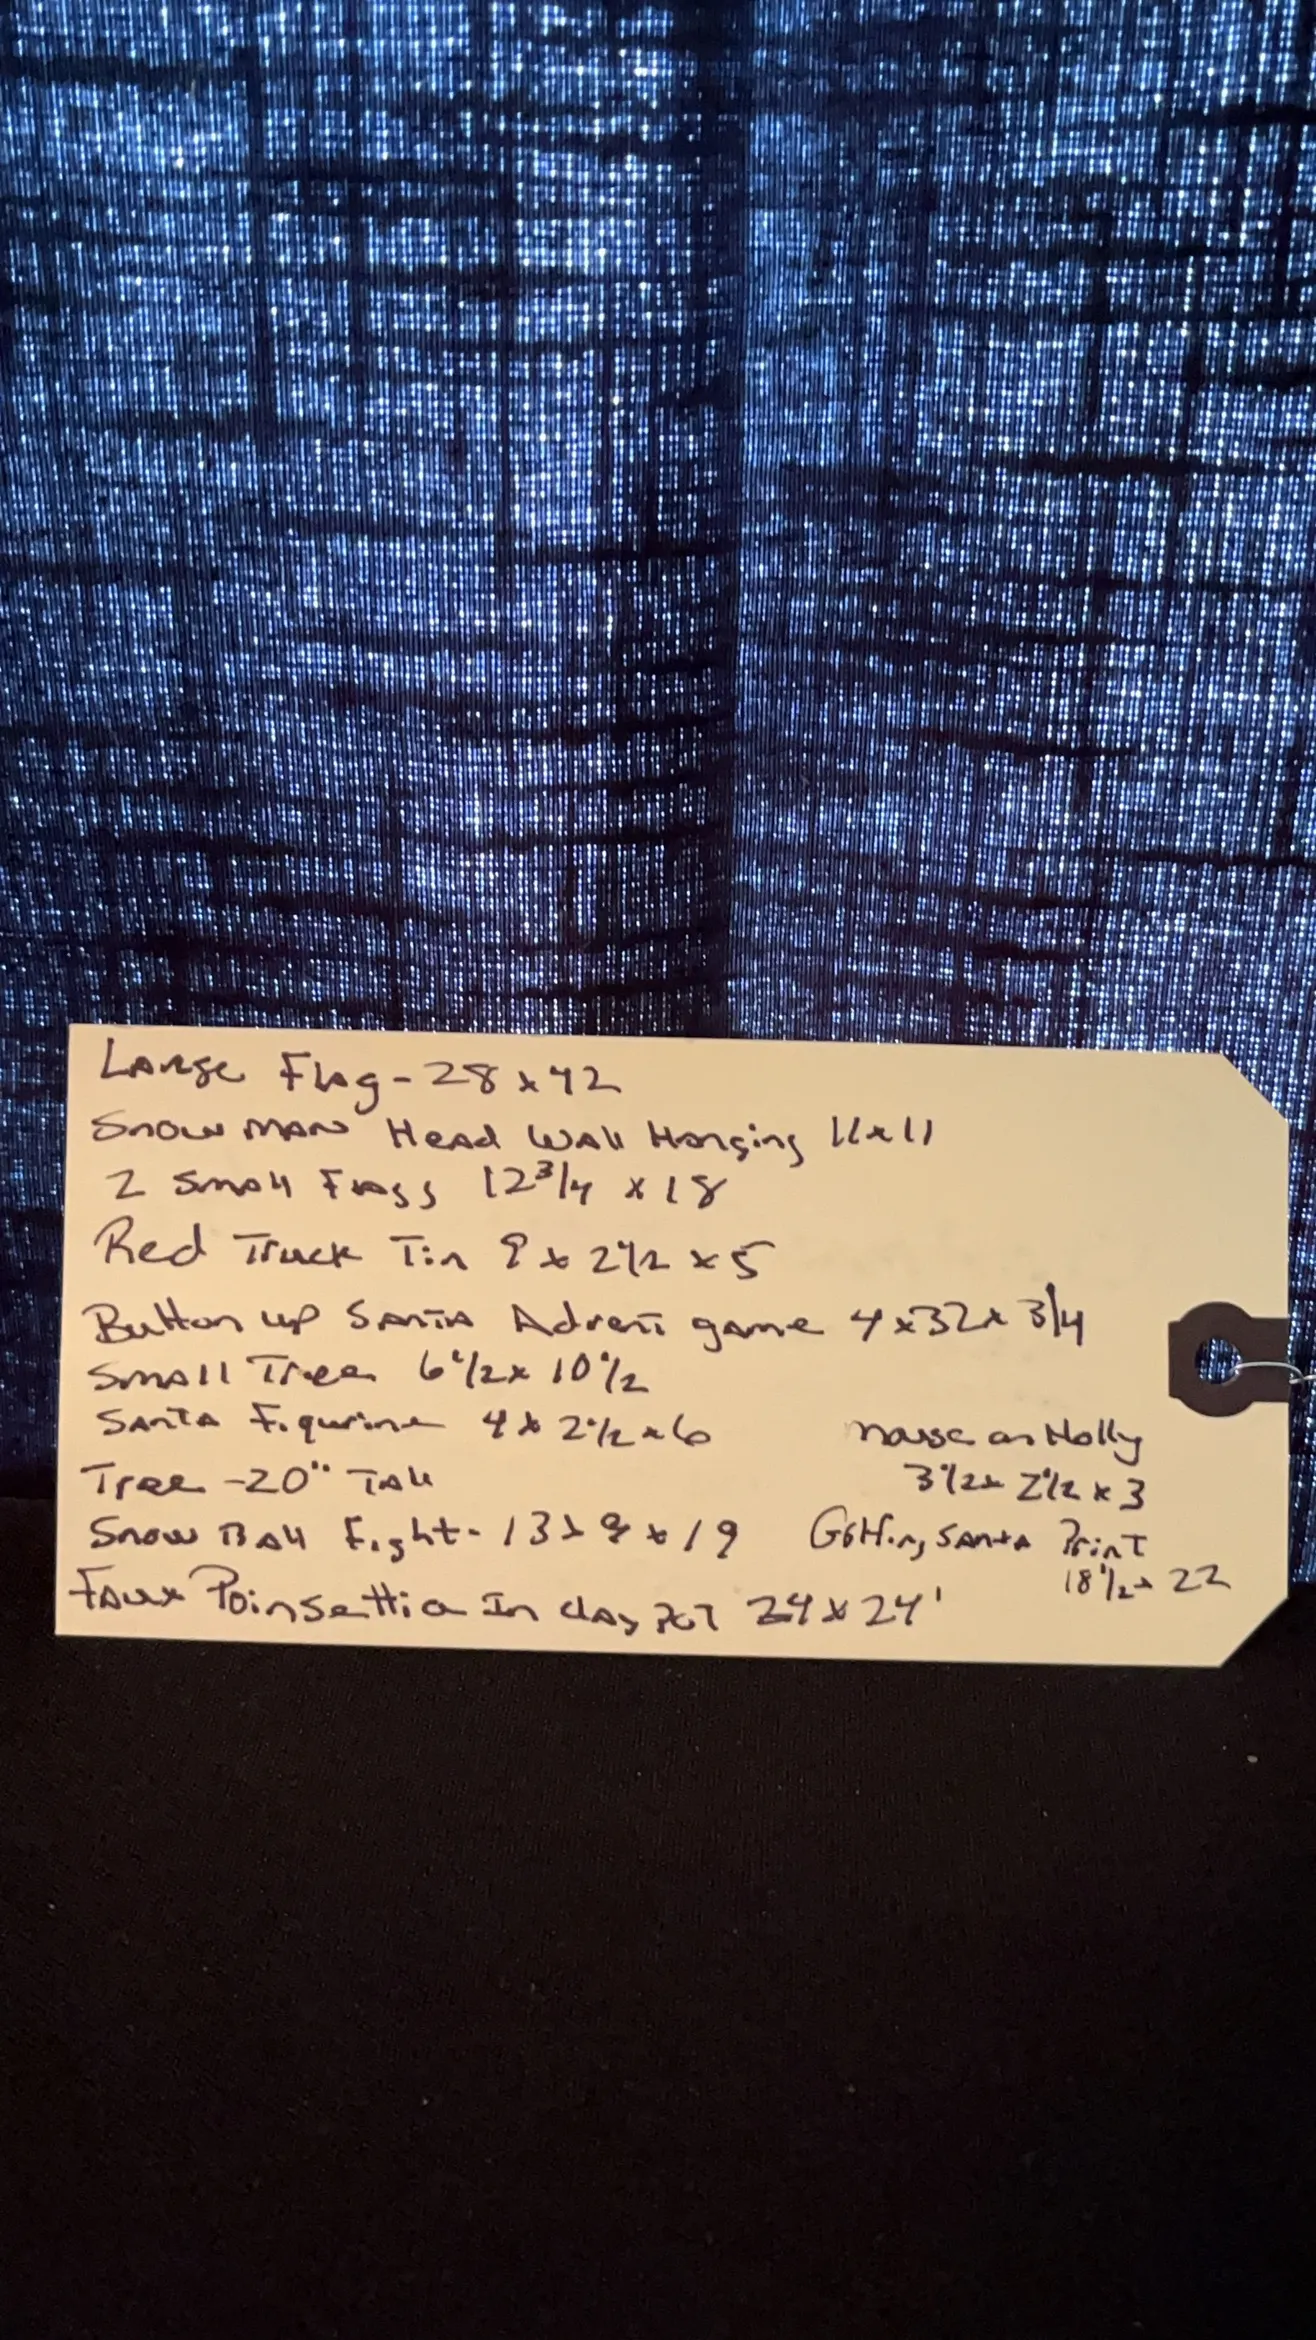 Large Flag - 28 x 42
Snowman Head Wall Hanging 11 x 11
2 Small Flags 12 3/4 x 18
Red Truck Tin 9 x 2 1/2 x 5
Button up Santa Advent game 4 x 32 x 3/4
Small Tree 6 1/2 x 10 1/2
Santa Figurine 4 x 2 1/2 x 6
Tree - 20" Tall
Snow Ball Fight - 13 x 9 x 19
Faux Poinsettia In clay pot 24 x 24'
mouse on Holly
3 1/2 x 2 1/2 x 3
Golfing Santa Print
18 1/2 x 22